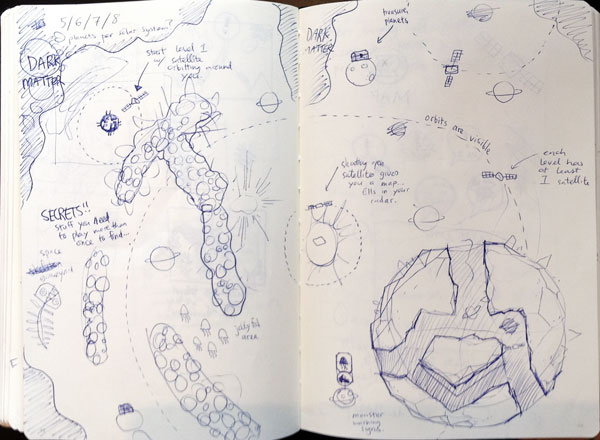 5/6/7/8
planets per solar system?
DARK
MATTER
start level 1
w/ satellite
orbitting around
you.
SECRETS!!
stuff you need
to play more than
once to find...
space
graveyard
jelly fish
area
DARK
MATTER
treasure
planets
orbits are visible
each
level has
at least
1 satellite
satellite gives
you a map...
fills in your
radar.
monster
warning
signs.